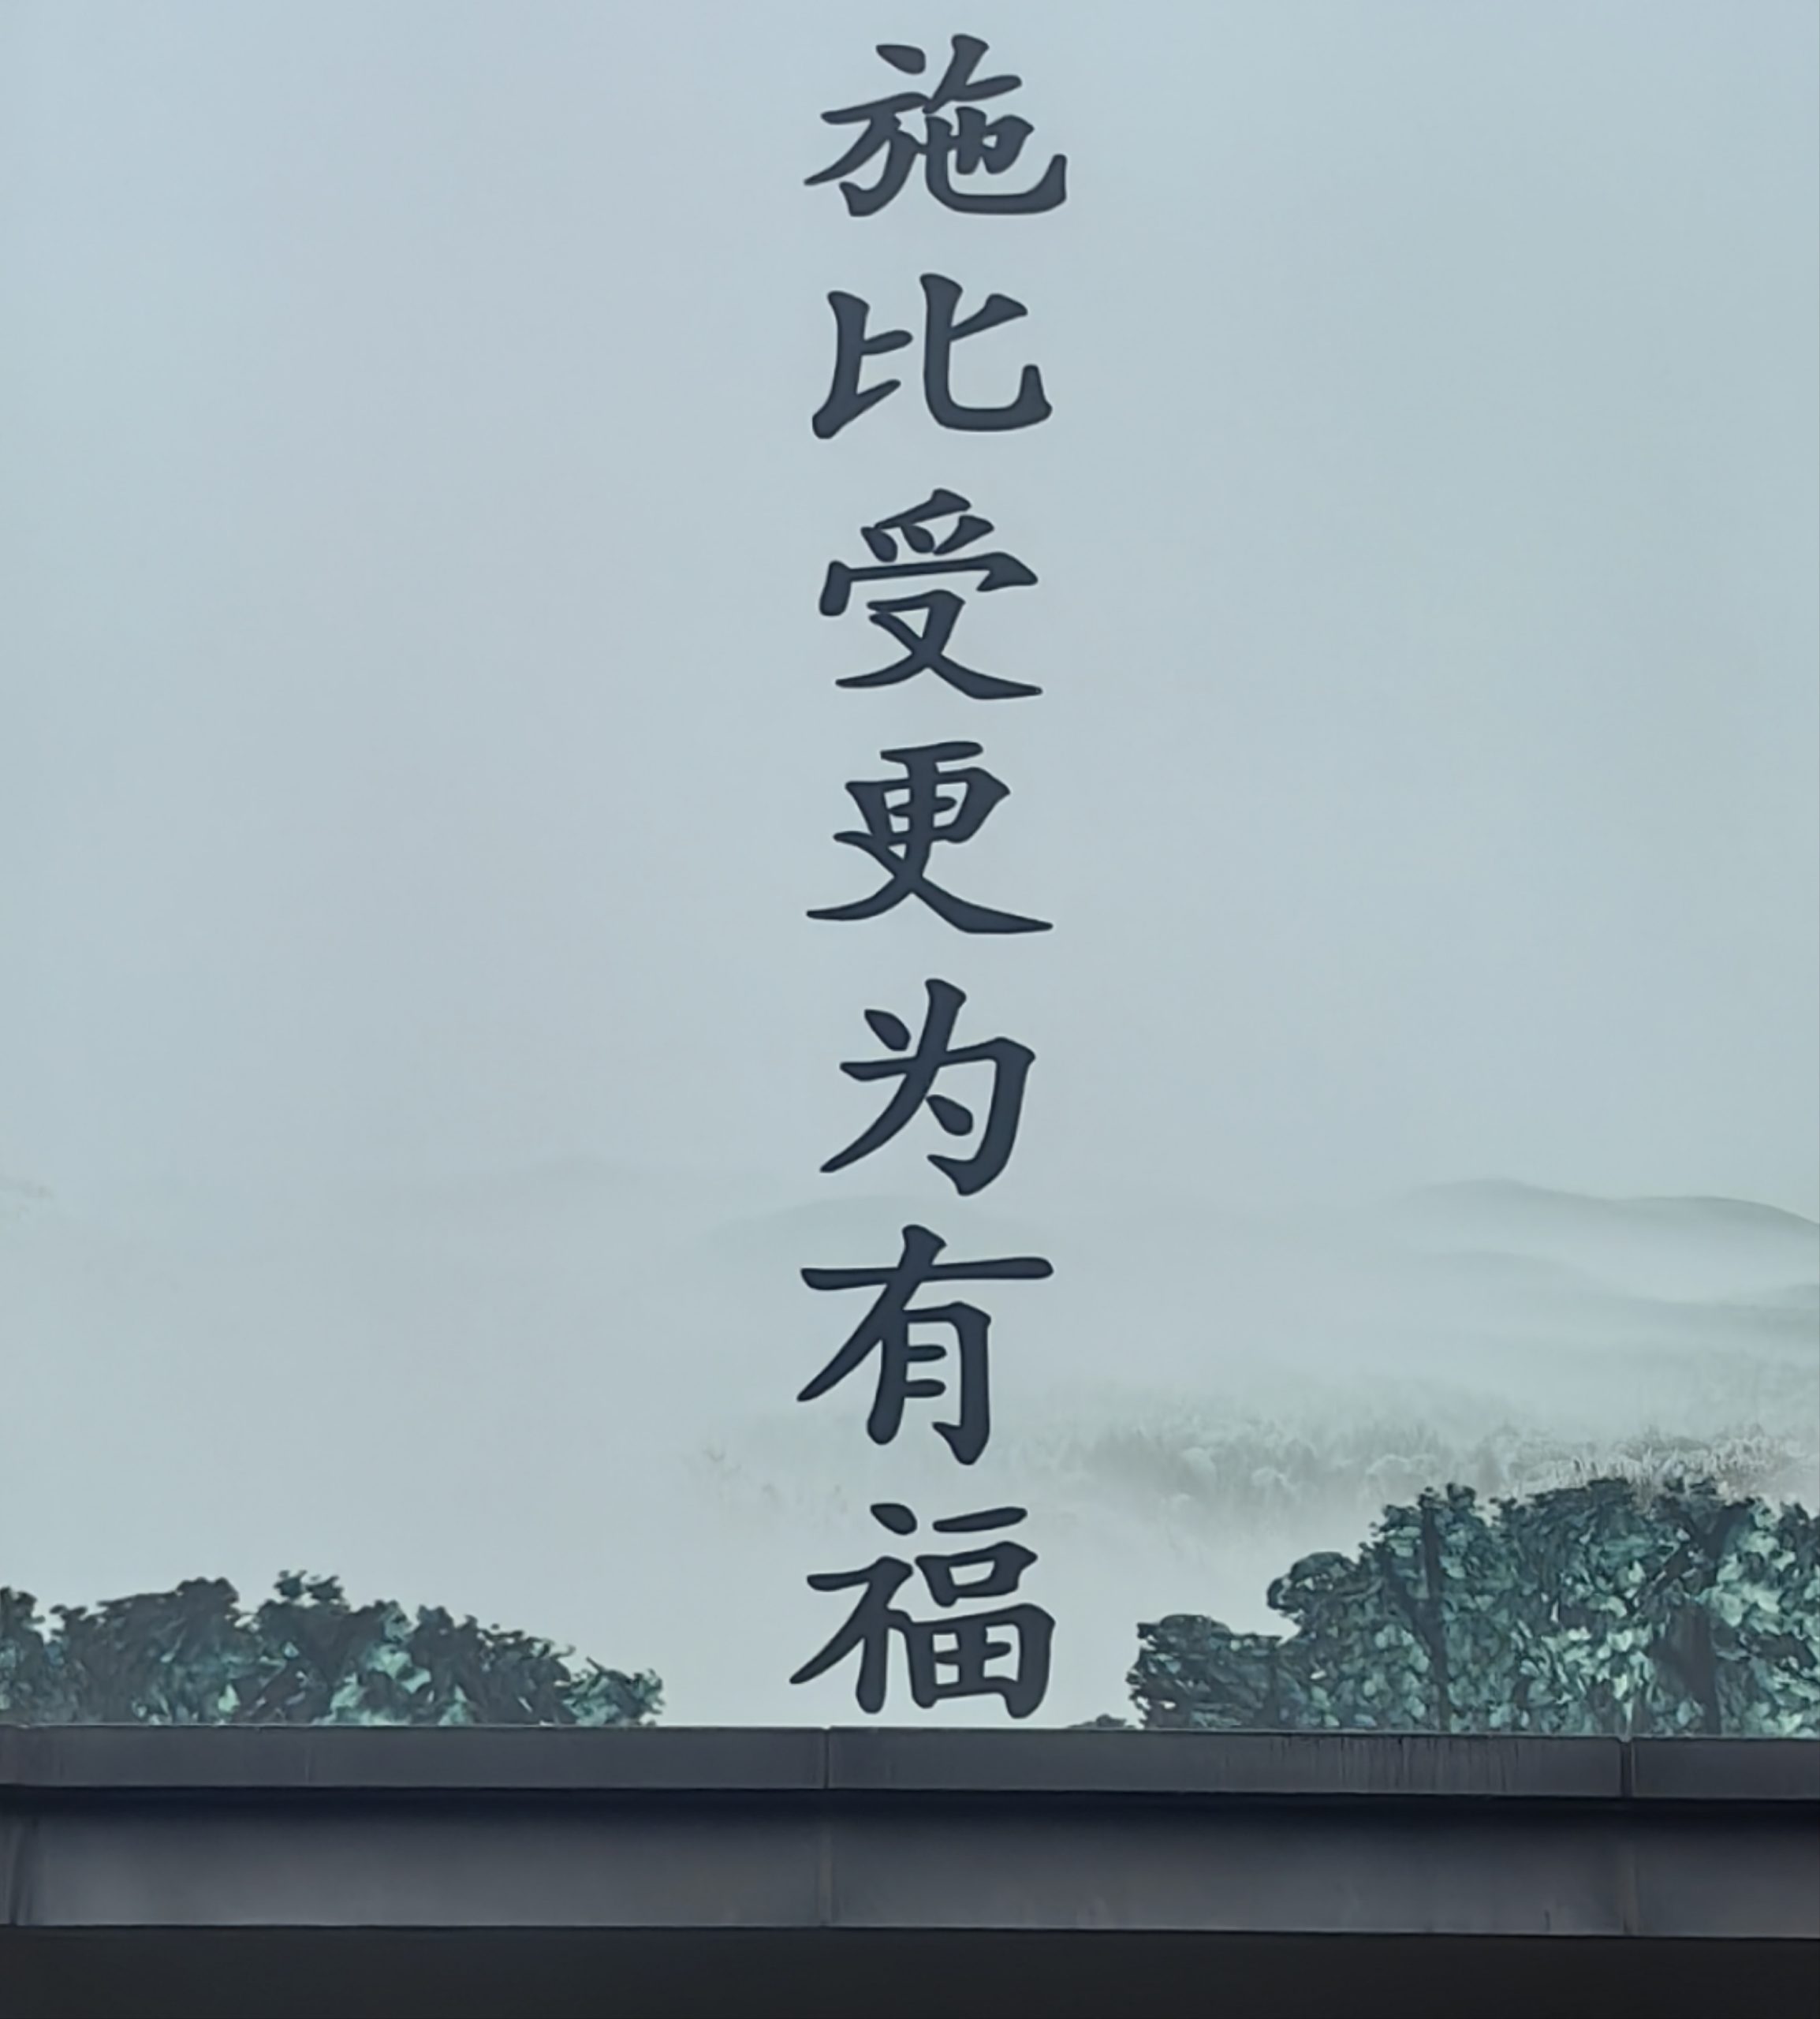 施比受更为有福